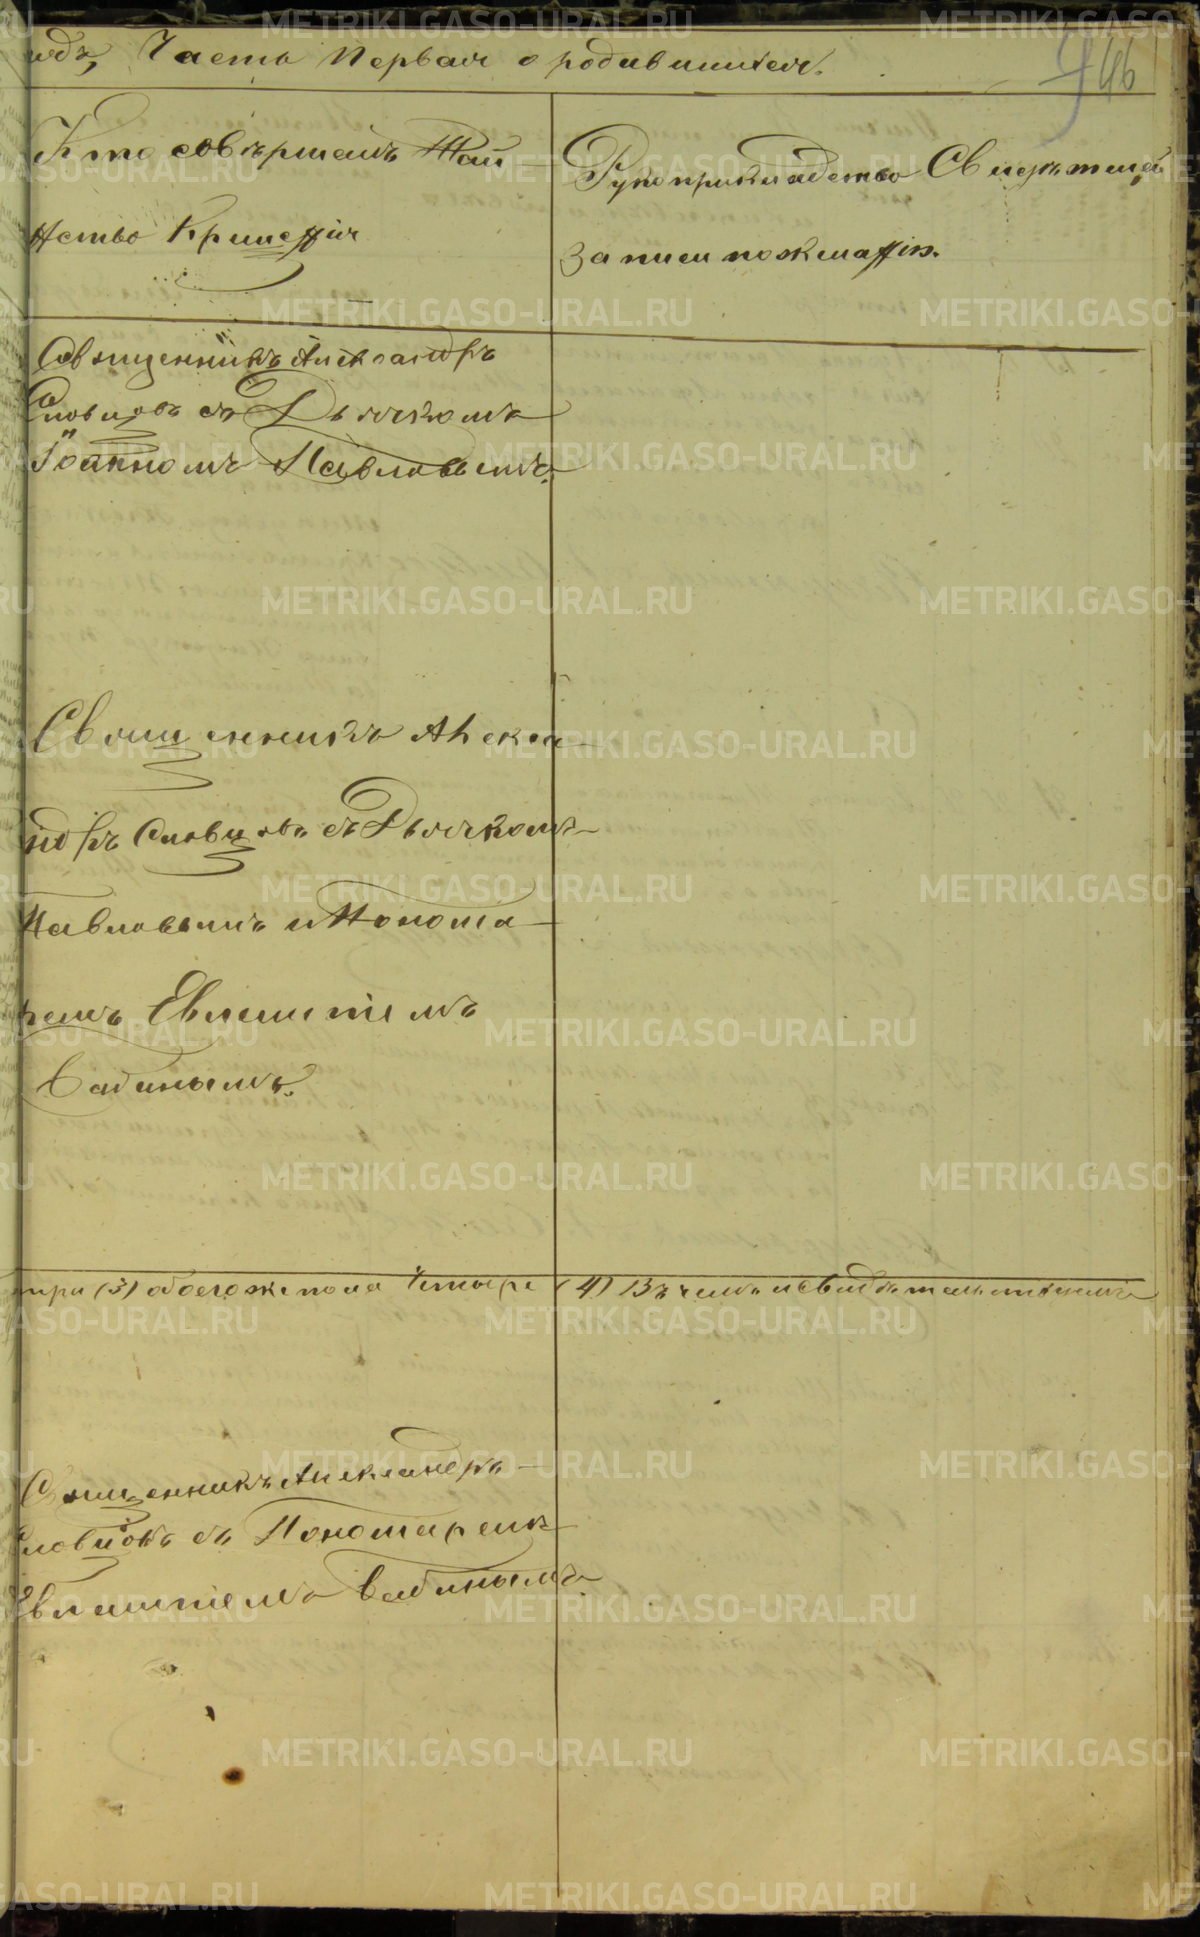 годъ, Часть Первая о родившихся.
46
Кто совершалъ Таи
нство Крещенія
Рукоприкладство Свидѣтелей
записи по желанію.
Священникъ Александръ
Словцовъ съ Дьячкомъ
Іоанномъ Павловымъ.
Священникъ Алекса
ндръ Словцовъ съ Дьячкомъ
Павловымъ и Понома
ремъ Евлампіемъ
Бабинымъ.
три (3) обоего же пола четыре (4) Въ чемъ и свидѣтельствуемъ
Священникъ Александръ
Словцовъ съ Пономаремъ
Евлампіемъ Бабинымъ
METRIKI.GASO-URAL.RU